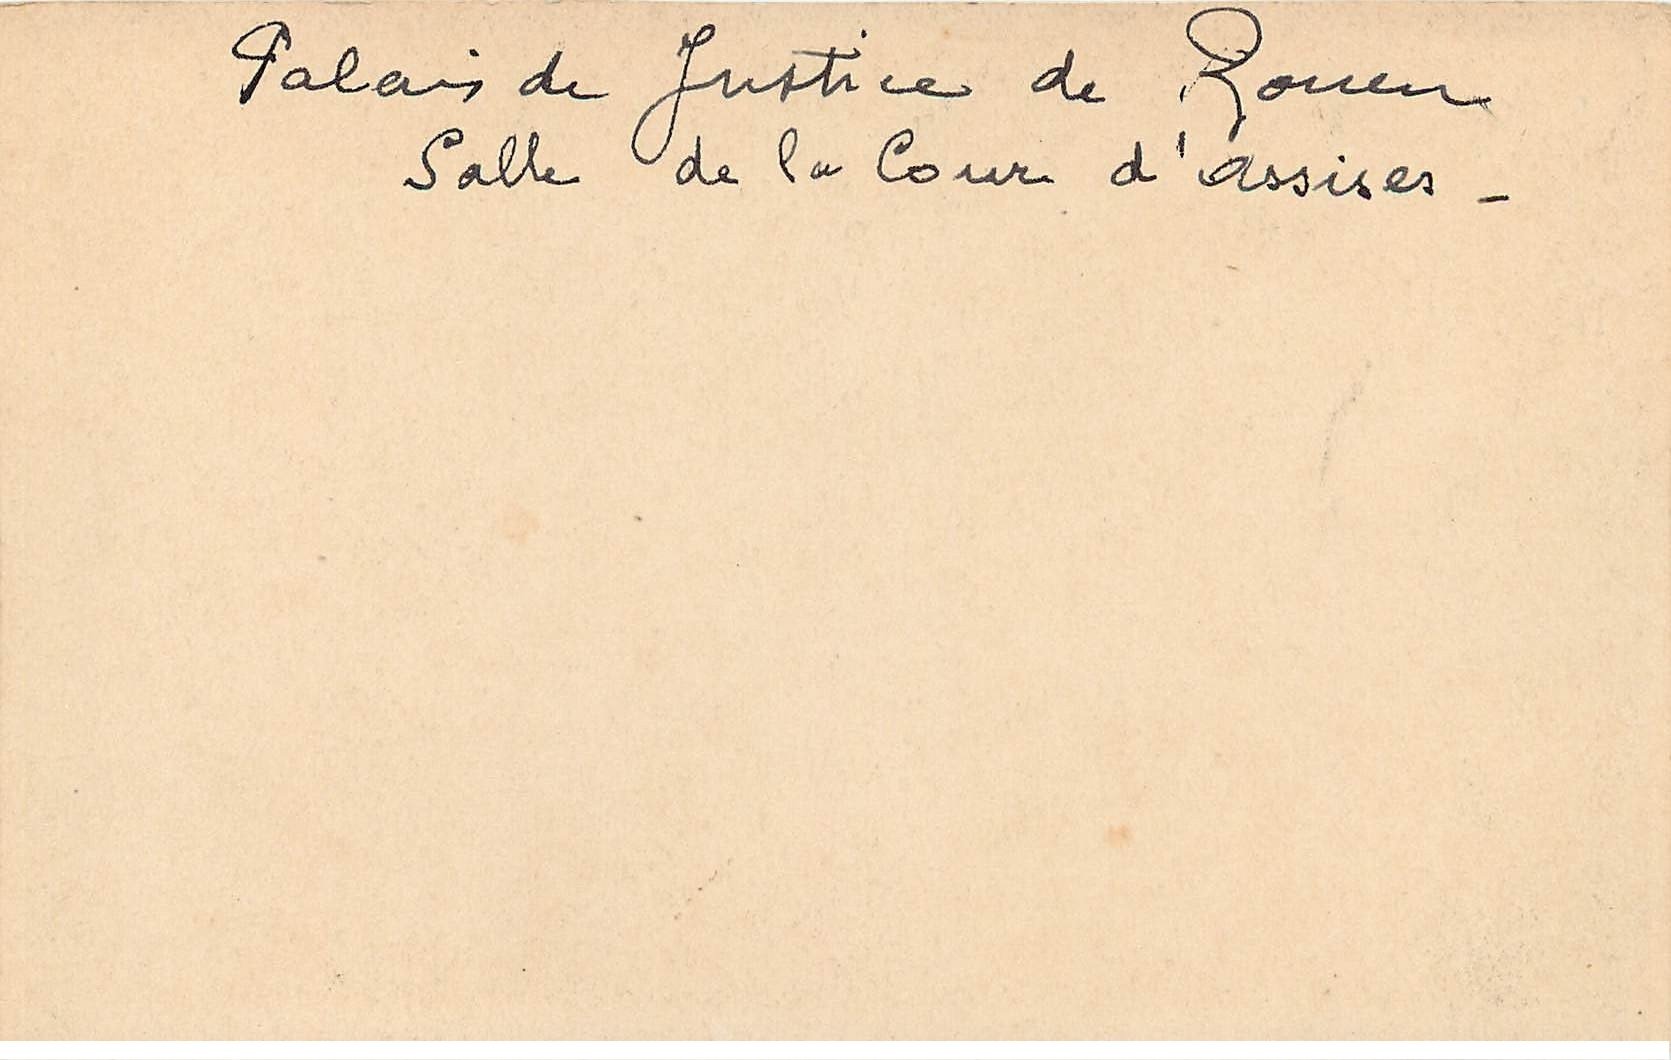 Palais de Justice de Rouen
Salle de la Cour d'assises -